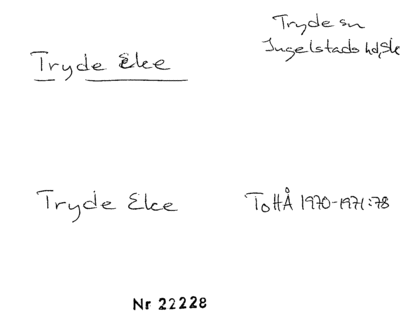 Tryde sn
Ingelstads hd, Sk
Tryde Eke
Tryde Eke
ToHÅ 1970-1971:78
Nr 22228